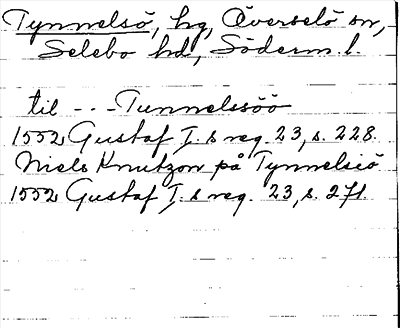 Tynnelsö, hg, Överselö sn,
Selebo hd, Söderm. l.
til - - - Tunnelssöö
1552 Gustaf I:s reg. 23, s. 228.
Niels Knutzon på Tynnelsiö
1552 Gustaf I:s reg. 23, s. 271.